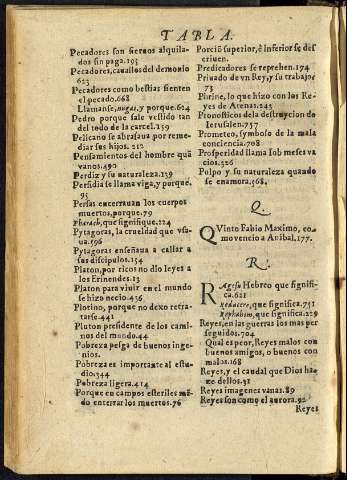 TABLA.
Pecadores son sieruos alquila-
dos sin paga.193
Pecadores, cauallos del demonio
623
Pecadores como bestias sienten
el pecado.668
Llamanse, nugas, y porque.624
Pedro porque sale vestido tan
del todo de la carcel.159
Pelicano se abrasaua por reme-
diar sus hijos. 212
Pensamientos del hombre quã
vanos.490
Perdiz y su naturaleza.139
Perfidia se llama viga, y porque.
95
Persas encerrauan los cuerpos
muertos, porque.79
Pharach, que significa.224
Pytagoras, la crueldad que vsa-
ua.596
Pytagoras enseñaua a callar a
sus discipulos.154
Platon, por ricos no dio leyes a
los Erinendes.13
Platon para viuir en el mundo
se hizo necio.436
Plotino, porque no dexo retra-
tarse.441
Pluton presidente de los cami-
nos del mundo.44
Pobreza pesga de buenos inge-
nios.
Pobreza es importante al estu-
dio.344
Pobreza ligera.414
Porque en campos esteriles mã-
do enterrar los muertos.76
Porciõ superior, è inferior se des
criuen.
Predicadores se reprehen.174
Priuado de vn Rey, y su trabajo
73
Phrine, lo que hizo con los Re-
yes de Atenas.243
Pronosticos dela destruycion de
Ierusalen.757
Prometeo, symbolo de la mala
conciencia.708
Prosperidad llama Iob meses va
cios.526
Pulpo y su naturaleza quando
se enamora.568.
Q.
QVinto Fabio Maximo, co-
mo vencio a Anibal.177.
R.
RAgesa Hebreo que signifi-
ca.621
Redacere, que significa.751
Rephabim, que significa.229
Reyes, en las guerras los mas per
seguidos.704
Qual es peor, Reyes malos con
buenos amigos, o buenos con
malos.168
Reyes, y el caudal que Dios ha-
ze dellos.31
Reyes imagenes vanas.89
Reyes son como el aurora.92
Reyes